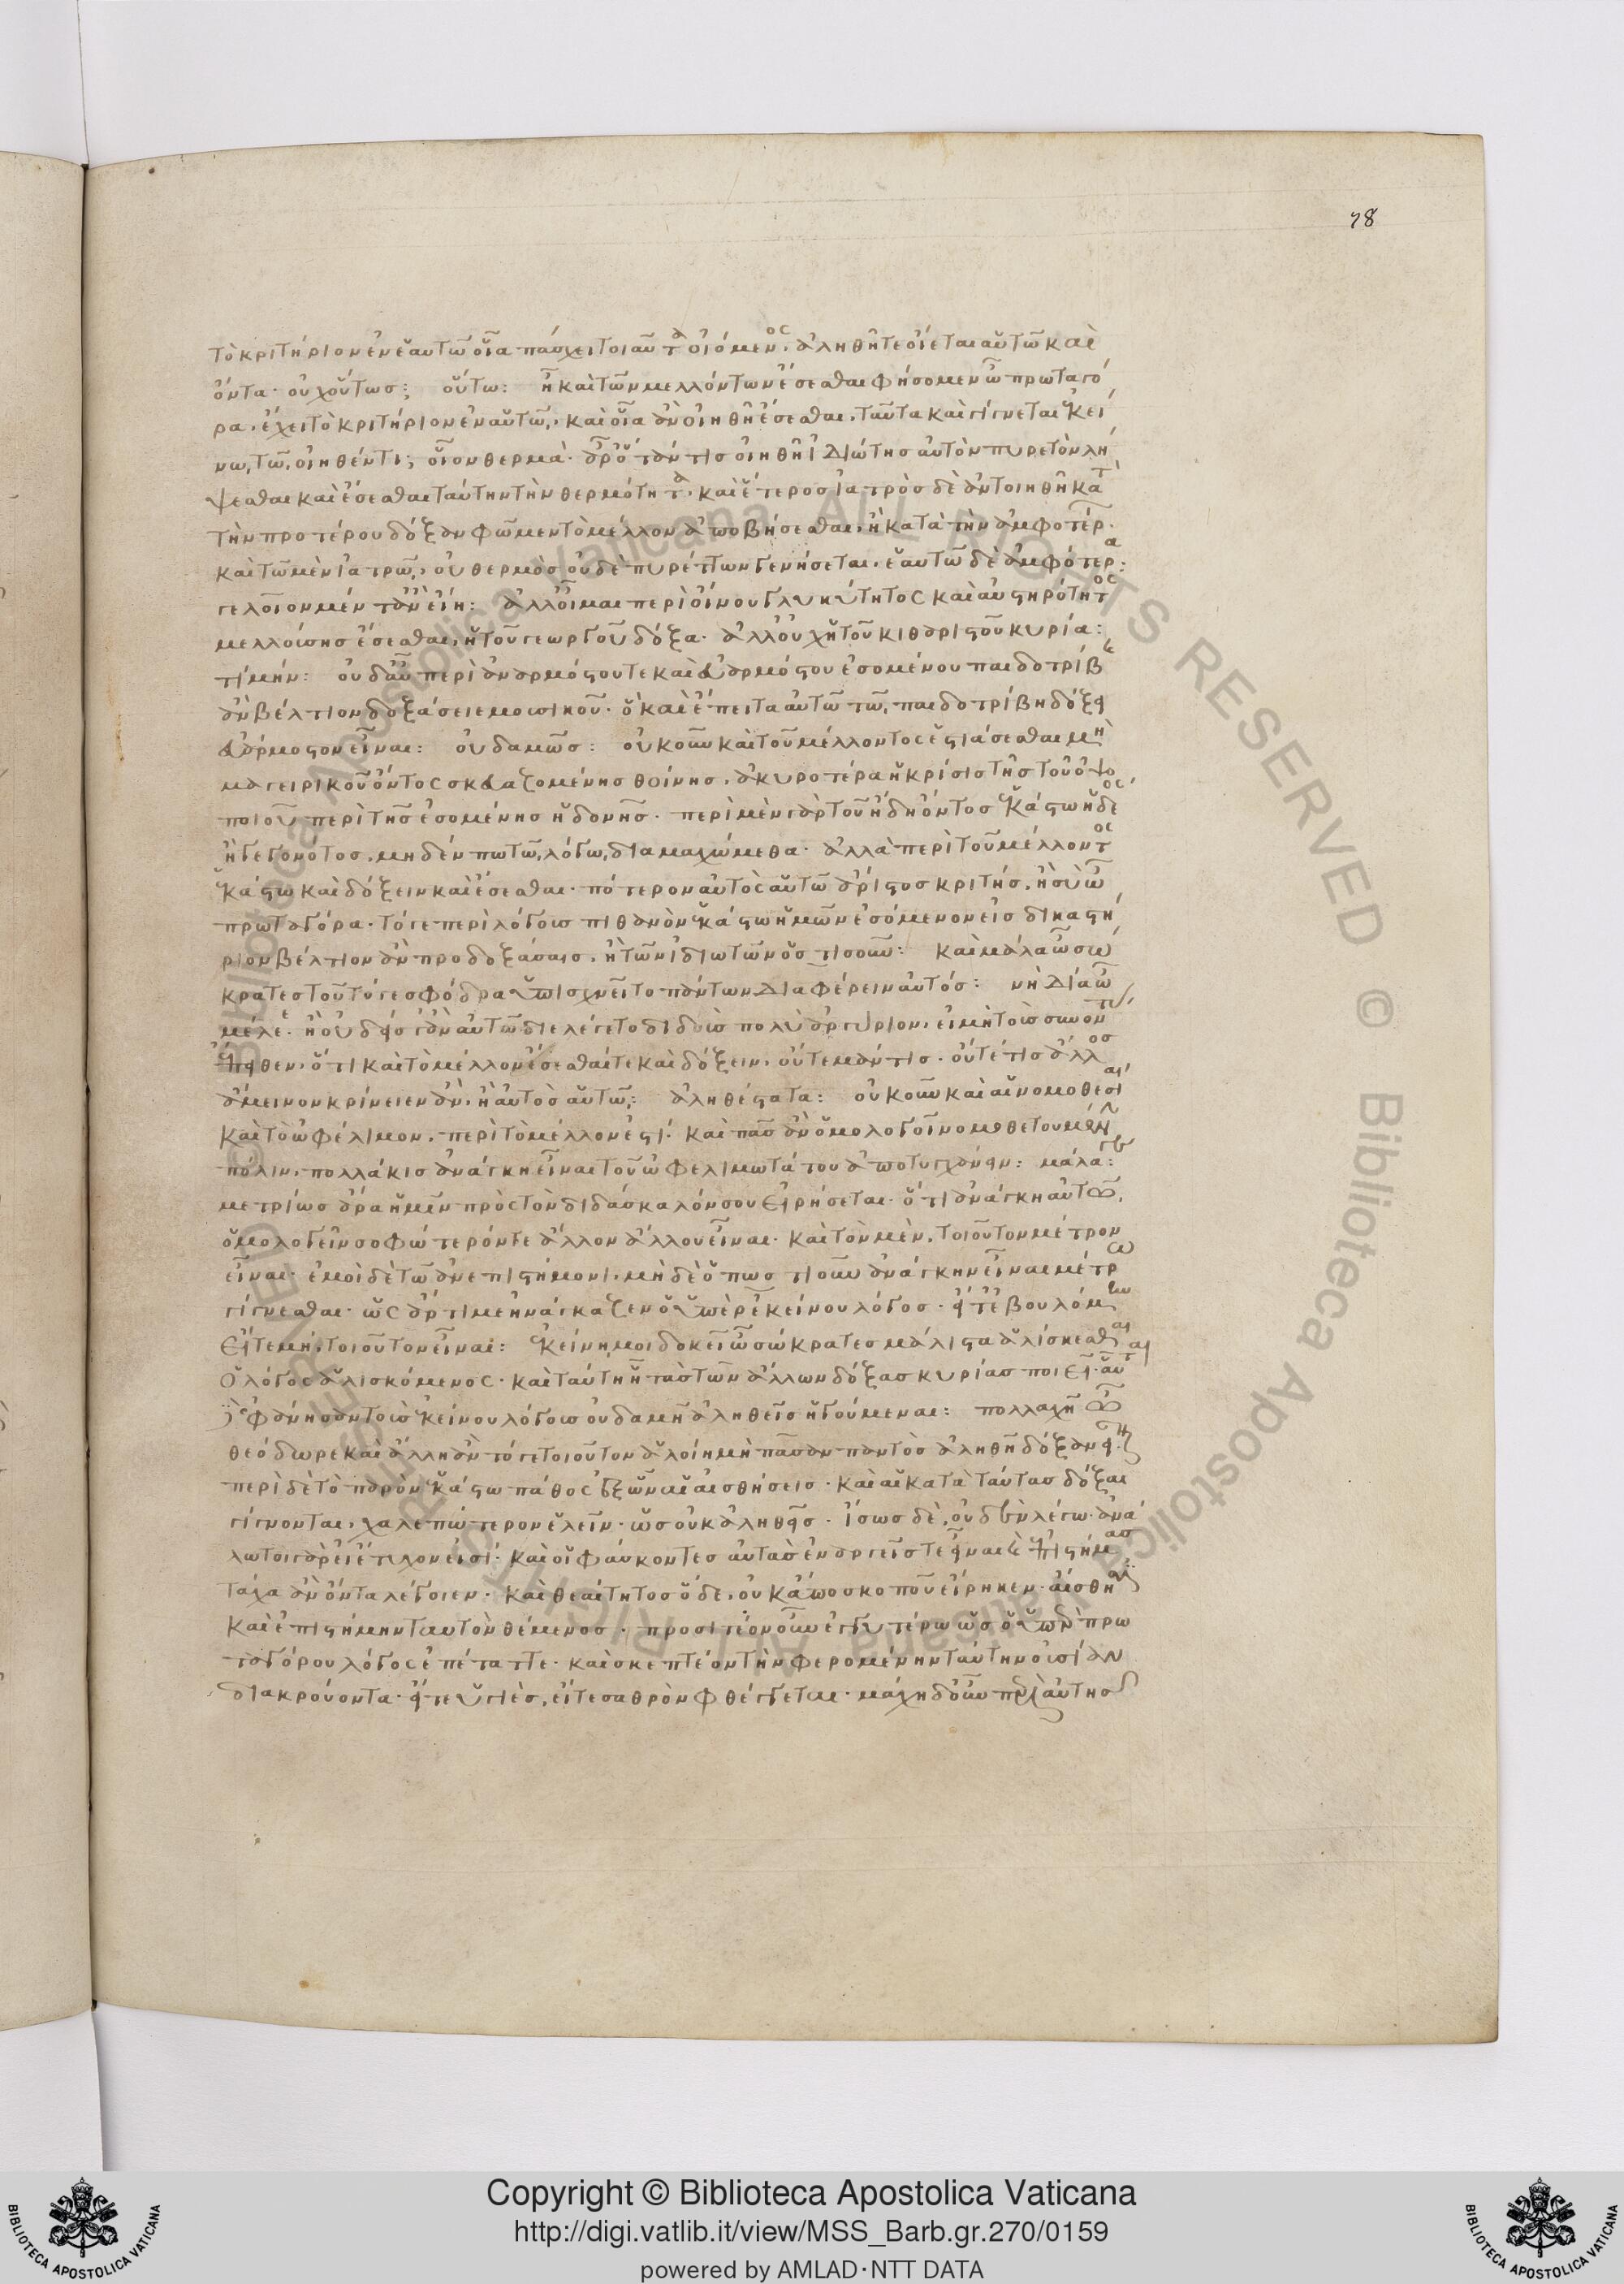 78
τὸ κριτήριον ἐν ἑαυτῶ οἷα πάσχει τοιαῦτα οἰόμενος, ἀληθῆ τε οἴεται αὑτῶ καὶ
ὄντα· οὐχ οὕτως; οὕτω: ἦ καὶ τῶν μελλόντων ἔσεσθαι φήσομεν ὦ πρωταγό
ρα, ἔχει τὸ κριτήριον ἐν αὑτῶ, καὶ οἷα ἂν οἰηθῆ ἔσεσθαι, ταῦτα καὶ γίγνεται ἐκεί
νω τῶ οἰηθέντι; οἷον θερμὰ· ἆρ' ὅταν τις οἰηθῆ ἰδιώτης αὐτὸν πυρετὸν λή
ψεσθαι καὶ ἔσεσθαι ταύτην τὴν θερμότητα, καὶ ἕτερος ἰατρὸς δὲ ἀντοιηθῆ κατὰ
τὴν προτέρου δόξαν φῶμεν τὸ μέλλον ἀποβήσεσθαι, ἢ κατὰ τὴν ἀμφοτέρ·
καὶ τῶ μὲν ἰατρῶ, οὐ θερμὸς οὐδὲ πυρέττων γενήσεται, ἑαυτῶ δὲ ἀμφότερα:
γελοῖον μέν τἂν εἴη: ἀλλ' οἶμαι περὶ οἴνου γλυκύτητος καὶ αὐστηρότητος
μελλούσης ἔσεσθαι, ἡ τοῦ γεωργοῦ δόξα· ἀλλ' οὐχ ἡ τοῦ κιθαριστοῦ κυρία:
τί μήν: οὐδ' αὖ περὶ ἀναρμόστου τε καὶ εὐαρμόστου ἐσομένου παιδοτρίβης
ἂν βέλτιον δοξάσειε μουσικοῦ· ὃ καὶ ἔπειτα αὐτῶ τῶ παιδοτρίβη δόξει
εὐάρμοστον εἶναι: οὐδαμῶς: οὐκοῦν καὶ τοῦ μέλλοντος ἑστιάσεσθαι μὴ
μαγειρικοῦ ὄντος σκευαζομένης θοίνης, ἀκυροτέρα ἡ κρίσις τῆς τοῦ ὀψο
ποιοῦ περὶ τῆς ἐσομένης ἡδονῆς· περὶ μὲν γὰρ τοῦ ἤδη ὄντος ἑκάστω ἡδέος
ἢ γεγονότος, μηδέν πω τῶ λόγω διαμαχώμεθα· ἀλλὰ περὶ τοῦ μέλλοντος
ἑκάστω καὶ δόξειν καὶ ἔσεσθαι· πότερον αὐτὸς αὑτῶ ἄριστος κριτής, ἢ σὺ ὦ
πρωταγόρα· τό γε περὶ λόγοις πιθανὸν ἑκάστω ἡμῶν ἐσόμενον εἰς δικαστή
ριον βέλτιον ἂν προδοξάσαις, ἢ τῶν ἰδιωτῶν ὅστισοῦν: καὶ μάλα ὦ σώ
κρατες τοῦτό γε σφόδρα ὑπισχνεῖτο πάντων διαφέρειν αὐτός: νὴ δία ὦ
μέλε· ἢ οὐδείς γ' ἂν αὐτῶ διελέγετο διδοὺς πολὺ ἀργύριον, εἰ μὴ τοὺς συνόντας
ἔπειθεν, ὅτι καὶ τὸ μέλλον ἔσεσθαί τε καὶ δόξειν, οὔτε μάντις· οὔτέ τις ἄλλος
ἄμεινον κρίνειεν ἄν, ἢ αὐτὸς αὑτῶ: ἀληθέστατα: οὐκοῦν καὶ αἱ νομοθεσίαι
καὶ τὸ ὠφέλιμον, περὶ τὸ μέλλον ἐστί· καὶ πᾶς ἂν ὁμολογοῖ νομοθετουμένην
πόλιν, πολλάκις ἀνάγκη εἶναι τοῦ ὠφελιμωτάτου ἀποτυγχάνειν: μάλα γε:
μετρίως ἄρα ἡμῖν πρὸς τὸν διδάσκαλόν σου εἰρήσεται· ὅτι ἀνάγκη αὐτῶ
ὁμολογεῖν σοφώτερόν τε ἄλλον ἄλλου εἶναι· καὶ τὸν μὲν τοιοῦτον μέτρον
εἶναι· ἐμοὶ δὲ τῶ ἀνεπιστήμονι, μὴ δὲ ὁπωστιοῦν ἀνάγκην εἶναι μέτρω
γίγνεσθαι· ὡς ἄρτι με ἠνάγκαζεν ὁ ὑπὲρ ἐκείνου λόγος· εἴτ' ἐβουλόμην
εἴτε μή, τοιοῦτον εἶναι: ἐκείνη μοι δοκεῖ ὦ σώκρατες μάλιστα ἁλίσκεσθαι
ὁ λόγος ἁλισκόμενος· καὶ ταύτη ἧ τὰς τῶν ἄλλων δόξας κυρίας ποιεῖ· αὗται
δὲ ἐφάνησαν τοὺς ἐκείνου λόγους οὐδαμῆ ἀληθεῖς ἡγούμεναι: πολλαχῆ ὦ
θεόδωρε καὶ ἄλλη ἂν τό γε τοιοῦτον ἁλοίη μὴ πᾶσαν παντὸς ἀληθῆ δόξαν εἶναι·
περὶ δὲ τὸ παρὸν ἑκάστω πάθος ἐξ ὧν αἱ αἰσθήσεις· καὶ αἱ κατὰ ταύτας δόξαι
γίγνονται, χαλεπώτερον ἑλεῖν· ὡς οὐκ ἀληθεῖς· ἴσως δὲ, οὐδὲν λέγω· ἀνά
λωτοι γὰρ εἰ ἔτυχον εἰσί· καὶ οἱ φάσκοντες αὐτὰς ἐναργεῖς τε εἶναι καὶ ἐπιστήμας
τάχα ἂν ὄντα λέγοιεν· καὶ θεαίτητος ὅδε, οὐκ ἄπο σκοποῦ εἴρηκεν· αἴσθησιν
καὶ ἐπιστήμην ταυτὸν θέμενος· προσιτέον οὖν ἐγγυτέρω ὡς ὁ ὑπὲρ πρω
ταγόρου λόγος ἐπέταττε· καὶ σκεπτέον τὴν φερομένην ταύτην οὐσίαν
διακρούοντα· εἴτε ὑγιὲς, εἴτε σαθρὸν φθέγγεται· μάχη δ' οὖν περὶ αὐτῆς